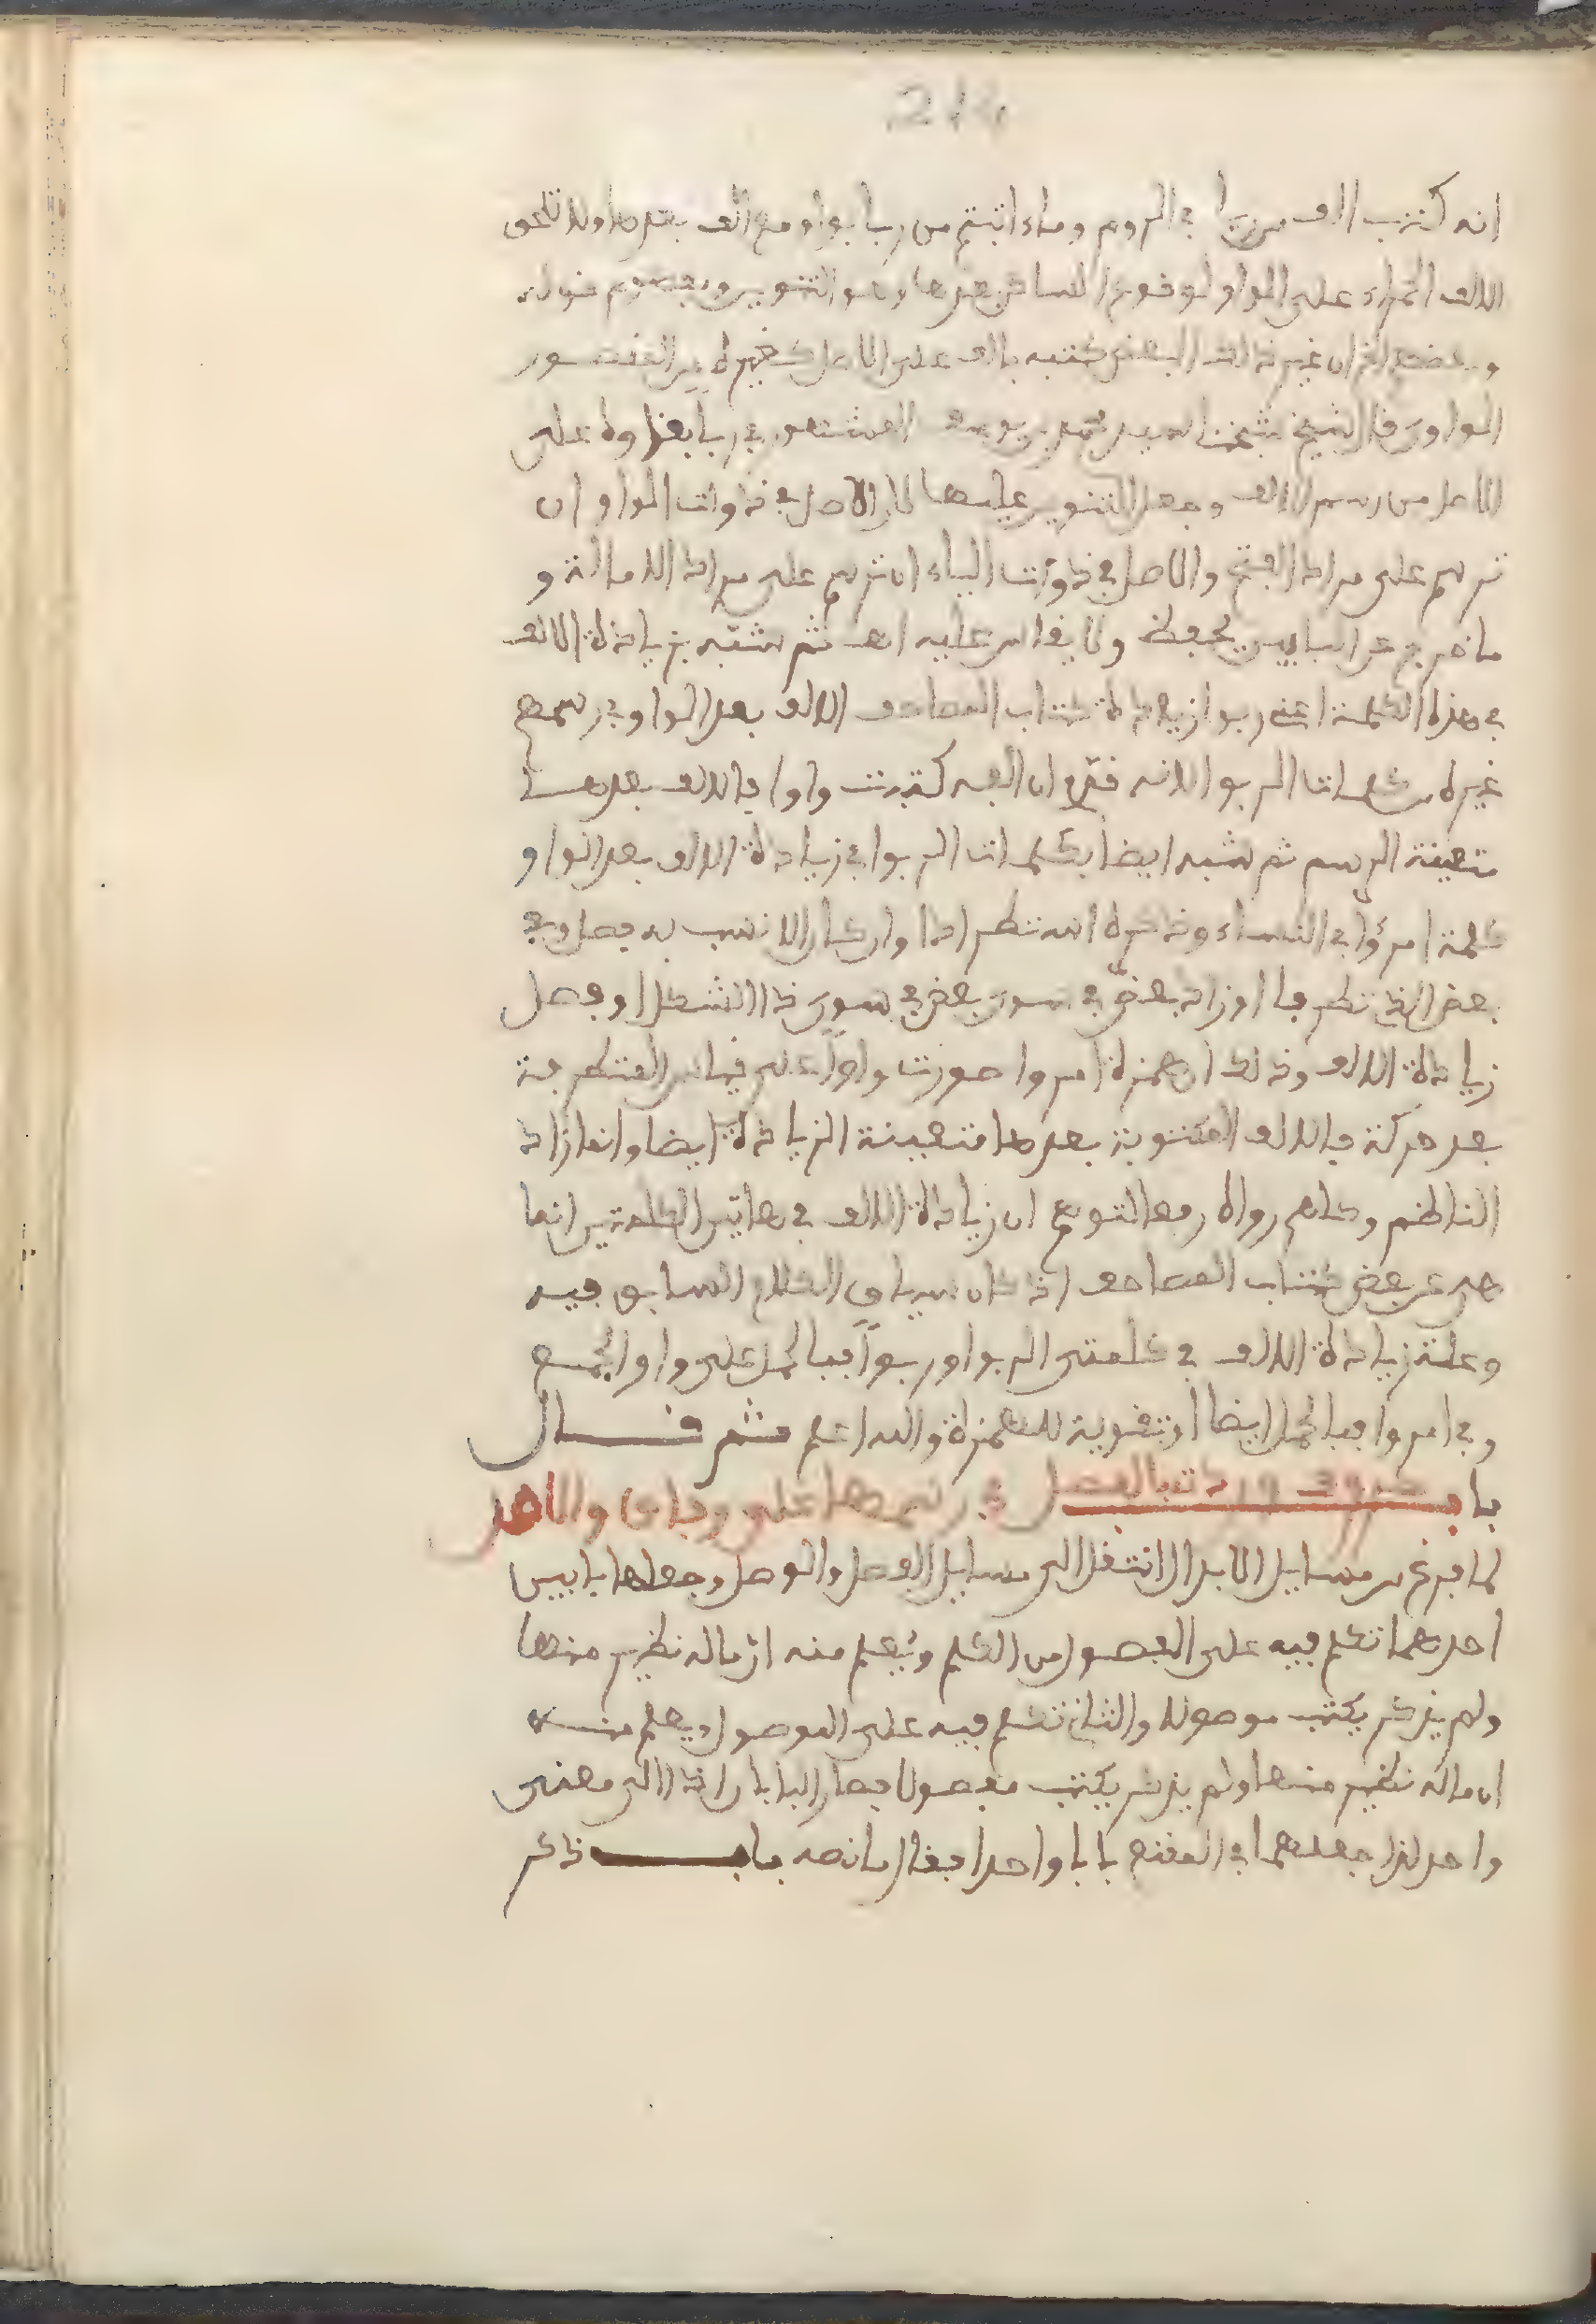 214
انه كتب الف من ربا في الروم وما ءاتيتم من ربا بواو مع الف بعدها ولا تلحق
الالف الحمراء على الواو لوقوع الساكن بعدها وهو التنوين ومفهوم قوله
وبعضهم ان غير ذالك البعض كتبه بالف على الاصل كغيره من المقصور
الواوي قال شيخنا محمد بن يوسف المشهور في ربا بغا ولا على
الاصل من رسم الالف وجعل التنوين عليها لان الاصل في ذوات الواو ان
ترسم على مراد الفتح والاصل في ذوات الياء ان ترسم على مراد الامالة و
ما خرج عن البابين يحفظ ولا يقاس عليه اهـ ثم شبه بزيادة الالف
في هذه الكلمة اعني ربوا زيادة كتاب المصاحف الالف بعد الواو في رسمهم
غيره من كلمات الربوا لانه قدم ان الفه كتبت واوا فالالف بعدها
متعينة الرسم ثم شبه ايضا بكلمات الربوا في زيادة الالف بعد الواو
كلمة امرؤا في النساء وذكره استطرادا وان كان الانسب به فصل وفي
بعض الذي تطرفا او زاد بعض في سوى ذا الشكل او فصل
زيادة الالف وذلك ان همزة امروا صورت واوا على قياس المتطرفة
بعد حركة فالالف المكتوبة بعدها متعينة الزيادة ايضا وانما زاد
الناظم وكلهم رواه رفعا لتوهم ان زيادة الالف في هاتين الكلمتين انما
هي عن بعض كتاب المصاحف اذ كان سياق الكلام السابق فيه
وعلة زيادة الالف في كلمتي الربوا وربوا فبالحمل على واو الجمع
وفي امروا فبالحمل ايضا او تقوية للهمزة والله اعلم ثم قال
باب حروف وردت بالفصل في رسمها على وفاق والاصل
لما فرغ من مسايل الابدال انتقل الى مسايل الفصل والوصل وجعلها بابين
احدهما تكلم فيه على المفصول من الكلم ويعلم منه ان ما له نظير منها
ولم يذكر يكتب موصولا والثاني تكلم فيه على الموصول ويعلم منه
ان ما له نظير منها ولم يذكر يكتب مفصولا فصار البابان اذا الى معنى
واحد لذا جعلهما في المقنع بابا واحدا فقال ما نصه باب ذكر